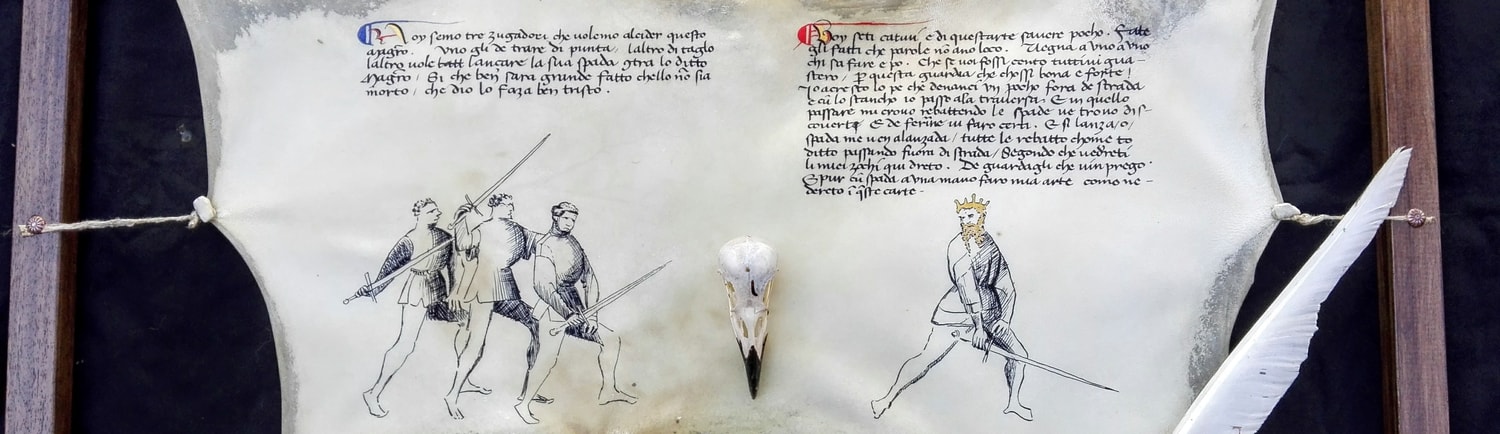 Noy semo tre zugadori che volemo alcider questo
magistro. Uno gli de trare di punta, laltro di taglo
laltro vole lanzare la sua spada contra lo ditto
Magistro, Si che ben sara grande fatto chello non sia
morto, che dio lo faza ben tristo.
Voy seti cativi, e di questarte savere pocho. Fate
gli fatti che parole nõ ano loco. Vegna a uno a uno
chi sa fare e po. Che se voi fossi cento tuttivi gua-
stero, per questa guardia che chossi bona e forte!
Io acresco lo pe che denanci un pocho fora de strada
e cũ lo stancho io passo ala traversa. E in quello
passare mi crovo rebattendo le spade ve trovo dis-
coverti E de ferire vi faro certi. E si lanza, o,
spada me ven alanzada, tutte le rebatto chome to
ditto passando fuora di strada, Segondo che vedreti
li miei zochi qui dreto. De guardagli che vim prego.
E pur cũ spada a una mano faro mia arte como ne-
dereto ĩ q̃ste carte.